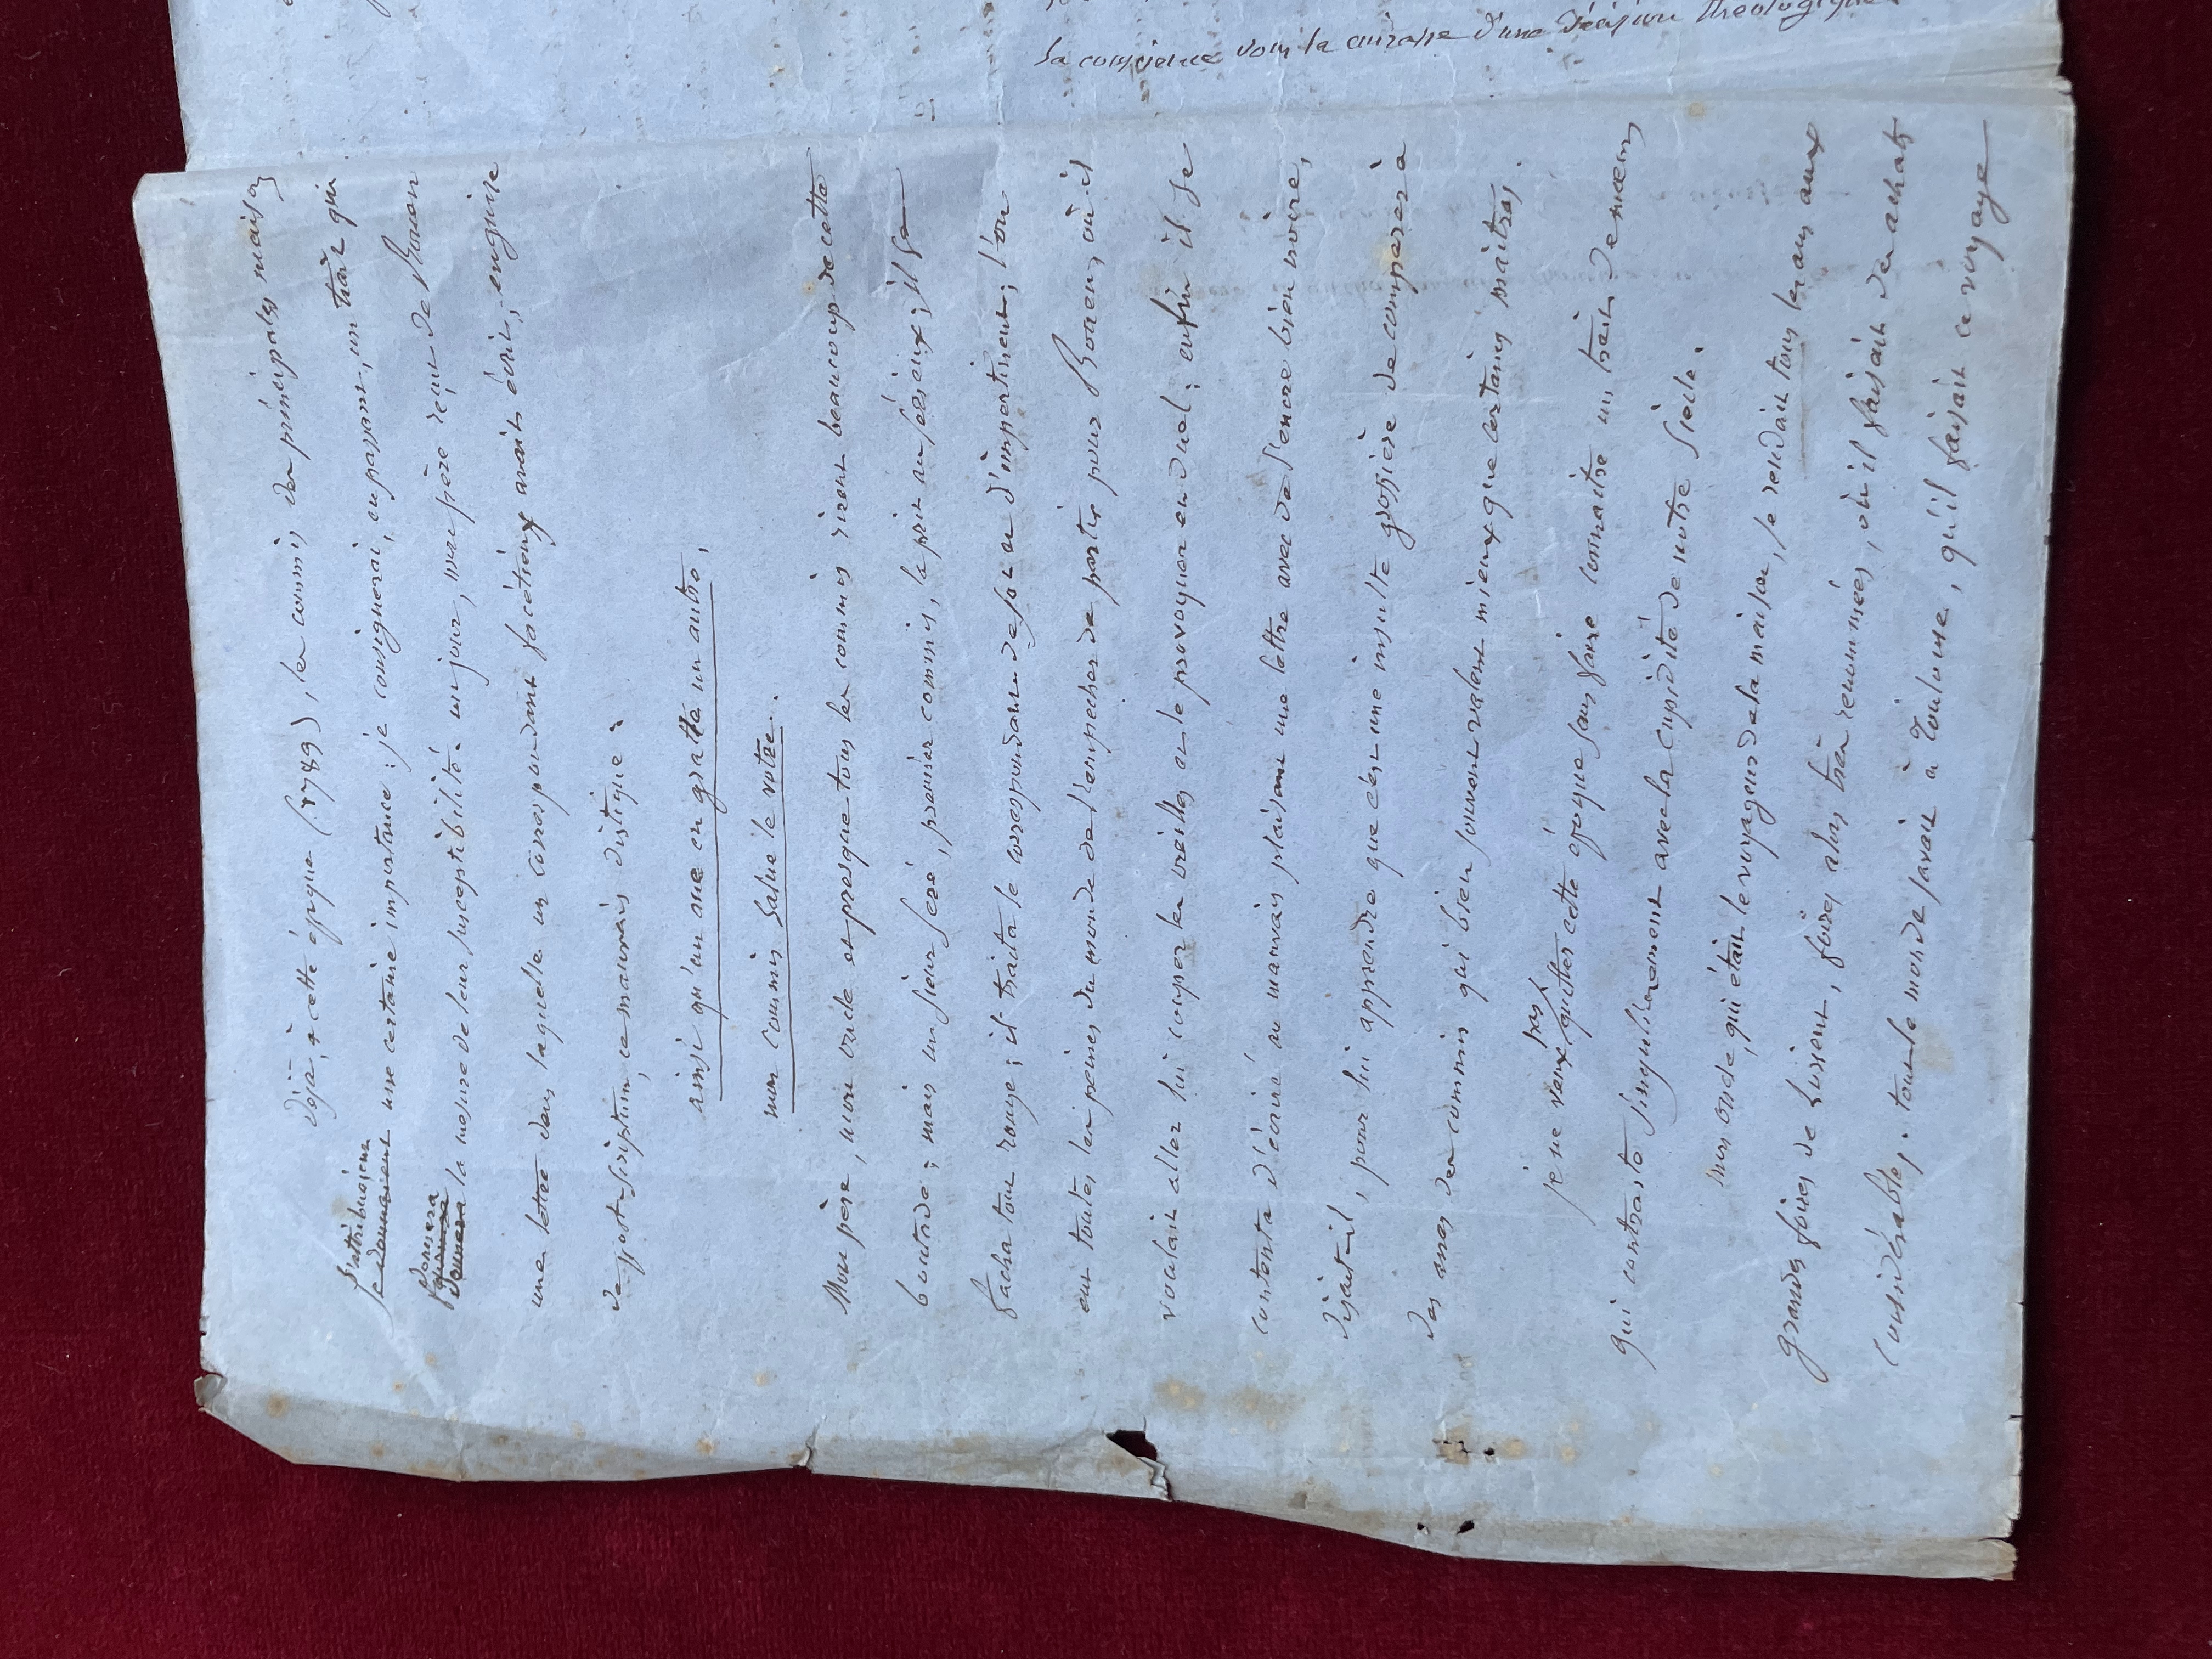 la conscience sous la cuirasse d'une décision théologique
Déjà, à cette époque (1789), les commis des principales maisons
s'attribuaient
se donnaient une certaine importance : je consignerai, en passant, un trait qui
donnera
donnera la mesure de leur susceptibilité. un jour, mon père reçut de Rouen
une lettre dans laquelle un correspondant facétieux avait écrit, en guise
de post-scriptum, ce mauvais distique :
ainsi qu'un âne en gratte un autre,
mon commis salue le votre.
Mon père, mon oncle et presque tous les commis rirent beaucoup de cette
boutade ; mais un sieur Seré, premier commis, la prit au sérieux ; il se
facha tout rouge ; il traita le correspondant de sot et d'impertinent ; l'on
eut toutes les peines du monde de l'empecher de partir pour Rouen, où il
voulait aller lui couper les oreilles et le provoquer en duel ; enfin il se
contenta d'écrire au mauvais plaisant une lettre avec de l'encre bien noire,
disait-il, pour lui apprendre que c'est une insulte grossière de comparer à
des anes des commis qui bien souvent valent mieux que certains maitres.
pas
je ne veux quitter cette époque sans faire connaitre un trait de mœurs
qui contraste singulièrement avec la cupidité de notre siècle.
mon oncle, qui était le voyageur de la maison, se rendait tous les ans aux
grandes foires de , foires alors très renommées, où il faisait des achats
considérables. tout le monde savait à Toulouse, qu'il faisait ce voyage